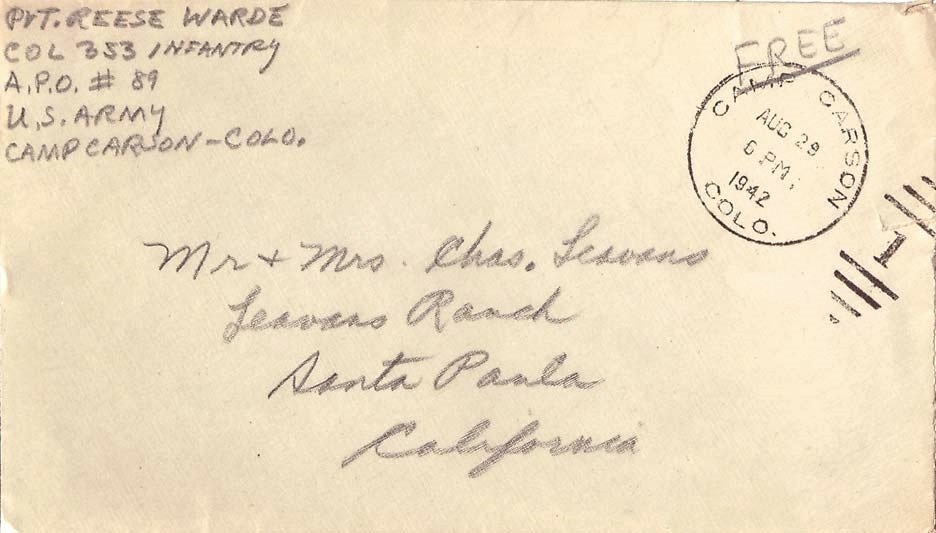 PVT. REESE WARDE
COL 353 INFANTRY
A.P.O. # 89
U.S. ARMY
CAMP CARSON - COLO.
FREE
CAMP CARSON
AUG 29
6 PM
1942
COLO.
Mr + Mrs. Chas. Teavans
Teavans Ranch
Santa Paula
California